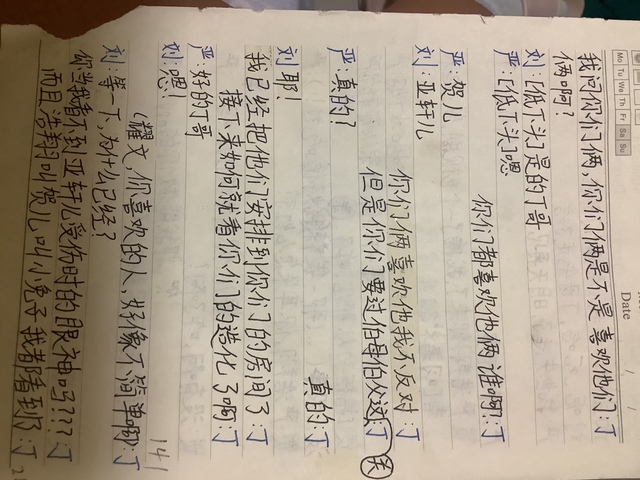 Mo Tu We Th Fr Sa Su
Date / /
我问你们俩,你们俩是不是喜欢他们:丁
俩啊?
刘:[低下头]是的丁哥
严:[低下头]嗯
你们都喜欢他俩谁啊:丁
严:贺儿
刘:亚轩儿
你们俩喜欢他我不反对:丁
但是你们要过伯母伯父这关:丁
严:真的?
真的:丁
刘:耶!
我已经把他们安排到你们的房间了:丁
接下来如何就看你们的造化了啊:丁
严:好的丁哥
刘:嗯!
耀文,你喜欢的人好像不简单啊:丁
刘:等一下,为什么已经?
你当我看不到亚轩儿受伤时的眼神吗???:丁
而且浩翔叫贺儿叫小兔子我都看到了:丁
141